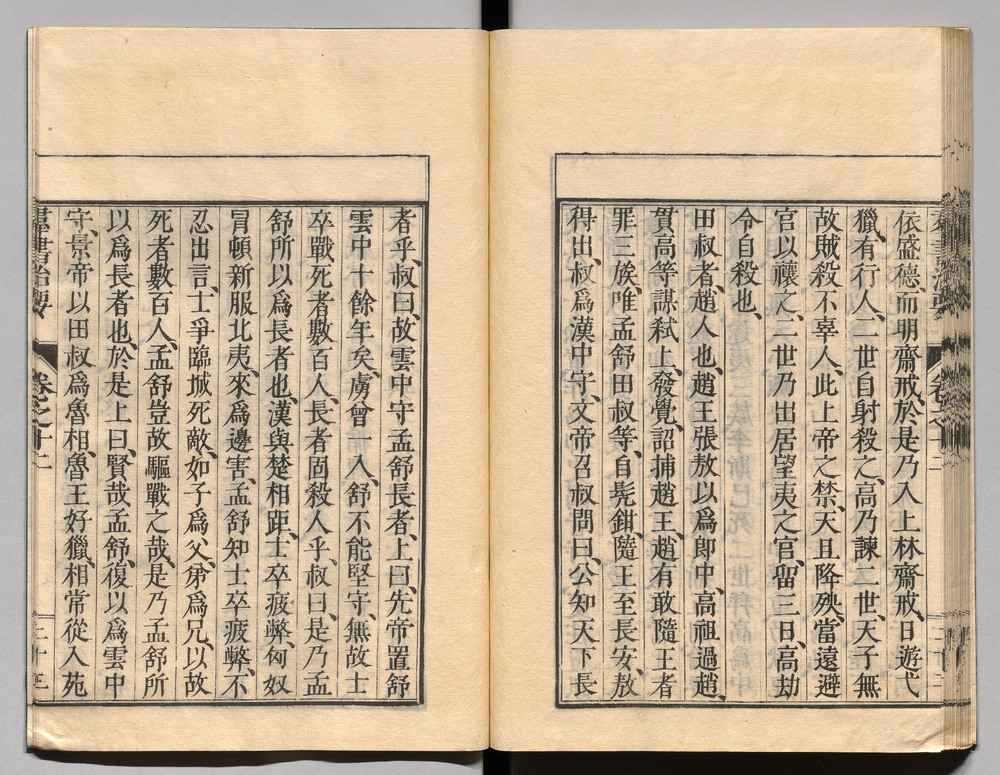 依盛德、而明齋戒、於是乃入上林齋戒、日遊弋
獵、有行人、二世自射殺之、高乃諫二世、天子無
故賊殺不辜人、此上帝之禁、天且降殃、當遠避
宮以禳之、二世乃出居望夷之宮、留三日、高劫
令自殺也、
田叔者、趙人也、趙王張敖以爲郎中、高祖過趙、
貫高等謀弒上、發覺、詔捕趙王、趙有敢隨王者
罪三族、唯孟舒田叔等、自髡鉗、隨王至長安、敖
得出、叔爲漢中守、文帝召叔問曰、公知天下長
者乎、叔曰、故雲中守孟舒長者、上曰、先帝置舒
雲中十餘年矣、虜曾一入、舒不能堅守、無故士
卒戰死者數百人、長者固殺人乎、叔曰、是乃孟
舒所以爲長者也、漢與楚相距、士卒疲弊、匈奴
冒頓新服北夷、來爲邊害、孟舒知士卒疲弊、不
忍出言、士爭臨城死敵、如子爲父、弟爲兄、以故
死者數百人、孟舒豈故驅戰之哉、是乃孟舒所
以爲長者也、於是上曰、賢哉孟舒、復以爲雲中
守、景帝以田叔爲魯相、魯王好獵、相常從入苑
羣書治要 卷之十二 二十三